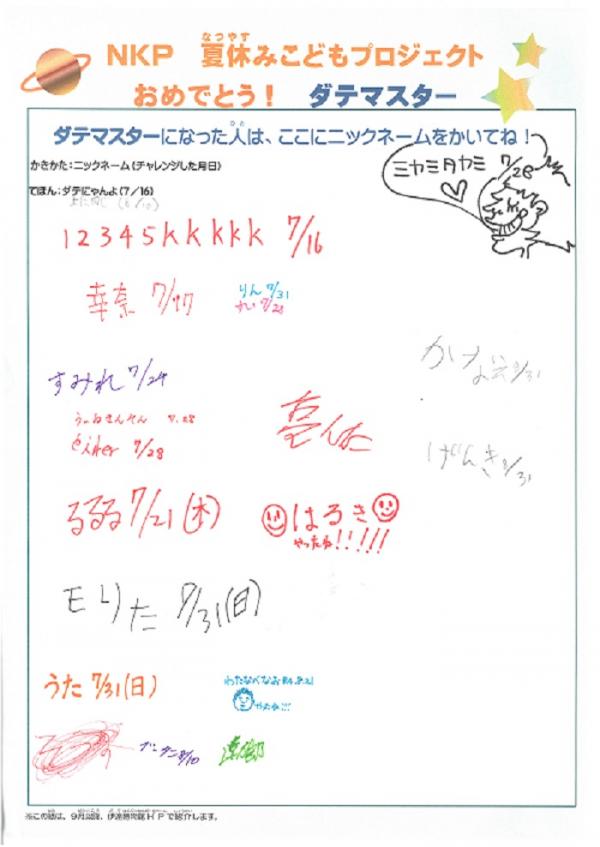 なつやす
NKP　夏休みこどもプロジェクト
おめでとう！　ダテマスター
ひと
ダテマスターになった人は、ここにニックネームをかいてね！
かきかた：ニックネーム（チャレンジした月日）
てほん：ダテにゃんよ（７／１６）
ミヤミタヤミ 7/28
12345kkkkk 7/16
幸奈 7/17
りん 7/31
7/28
すみれ 7/24
7.28
7/28
るるる 7/21(木)
はるき
やったね!!!!!
げんき
モりた 7/31(日)
うた 7/31(日)
わたなべなお
8/10
※この紙は、９月以降、伊達博物館ＨＰで紹介します。